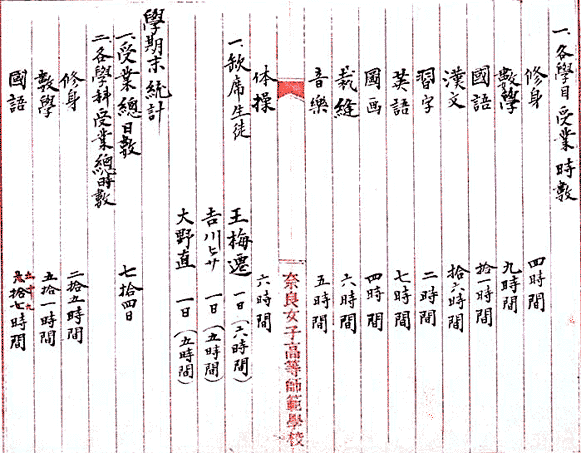 一、各學目受業時數
修身 四時間
數學 九時間
國語 拾一時間
漢文 拾六時間
習字 二時間
英語 七時間
圖画 四時間
裁縫 六時間
音樂 五時間
奈良女子高等師範學校
体操 六時間
一、缺席生徒 王梅遷 一日(六時間)
吉川ヒサ 一日(五時間)
大野直 一日(五時間)
學期末統計
一、受業總日數 七拾四日
二、各學科受業總時數
修身 二拾五時間
數學 五拾一時間
國語 拾七時間